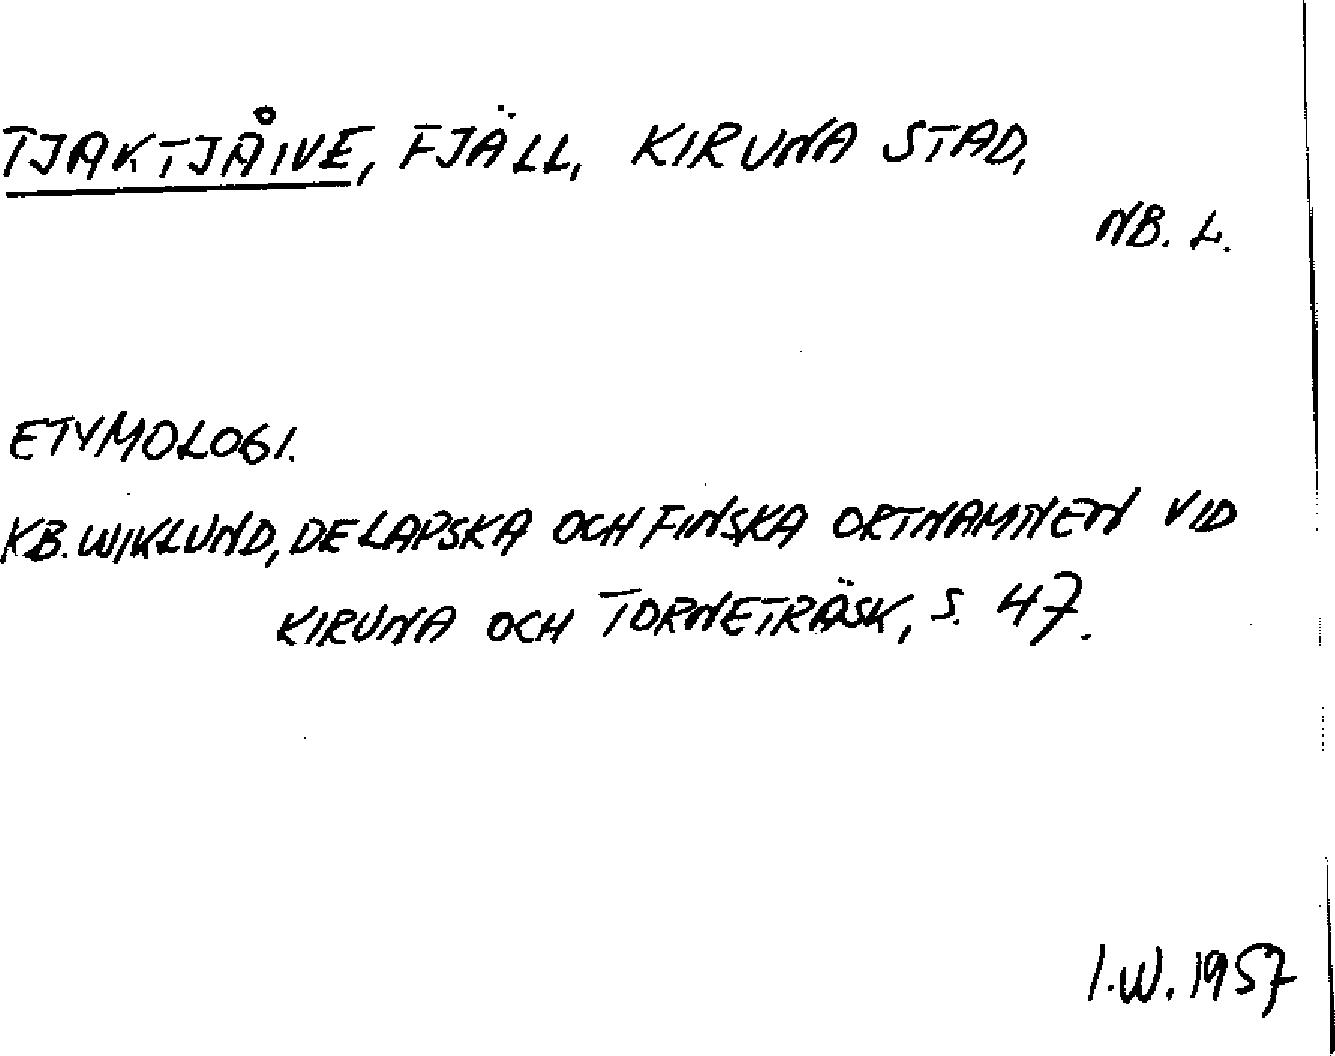 TJAKTJÅIVE, FJÄLL, KIRUNA STAD,
NB. L.
ETYMOLOGI.
KB. WIKLUND, DE LAPSKA OCH FINSKA ORTNAMNEN VID
KIRUNA OCH TORNETRÄSK, S. 47.
I.W. 1957